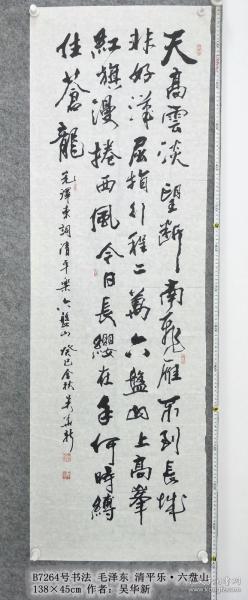 天高雲淡望断南飛雁不到長城
非好漢屈指行程二萬六盤山上高峯
紅旗漫捲西風今日長纓在手何時縛
住蒼龍
毛澤東詞清平樂六盤山 癸巳金秋 吴華新
B7264号书法 毛泽东 清平乐·六盘山
138×45cm 作者：吴华新